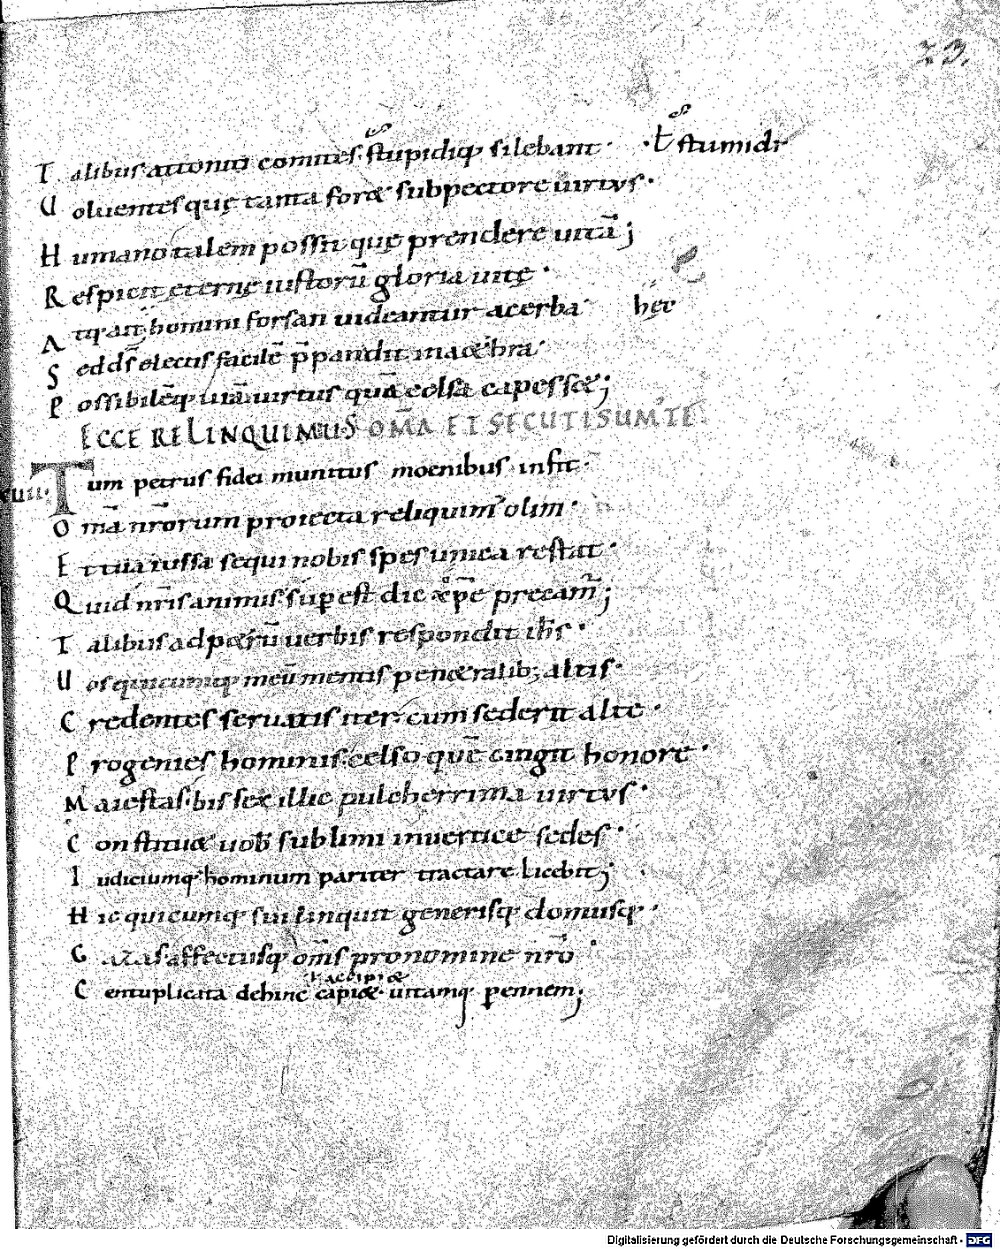 23.
T alibus attoniti comites stupidiq; silebant· ·ł stumidi
U oluentes quę tanta foret sub pectore uirtus·
H umano talem possit quę prendere uitā;
R espicit ęternę iustorū gloria uitę·
A tq; an homini forsan uideantur acerba hęc
S ed dš electis facilē p̄pandit in aethra·
P ossibilēq; uiā uirtus quā celsa capesset;
ECCE RELINQUIMUS OM̄A ET SECUTI SUM' TE
XUII· Tum petrus fidei munitus moenibus infit·
O m̄a nr̄orum proiecta reliquim' olim·
E t tua iussa sequi nobis spes unica restat·
Q uid nr̄is animis supest dic aepe precam̄;
T alibus ad petrū uerbis respondit ihs·
U os quicumq; meū mentis penetralib; altis·
C redentes seruatis iter cum sederit alte·
P rogenies hominis celso quē cingit honore·
M aiestas· bis sex illic pulcherrima uirtus·
C onstituet uob̄ sublimi in uertice sedes·
I udiciumq; hominum pariter tractare licebit;
H ic quicumq; sui linquit generisq; domusq;·
C aras affectusq; om̄s pro nomine nr̄o·
ł accipiet
C entuplicata dehinc capiet· uitamq; perennem;
Digitalisierung gefördert durch die Deutsche Forschungsgemeinschaft - DFG